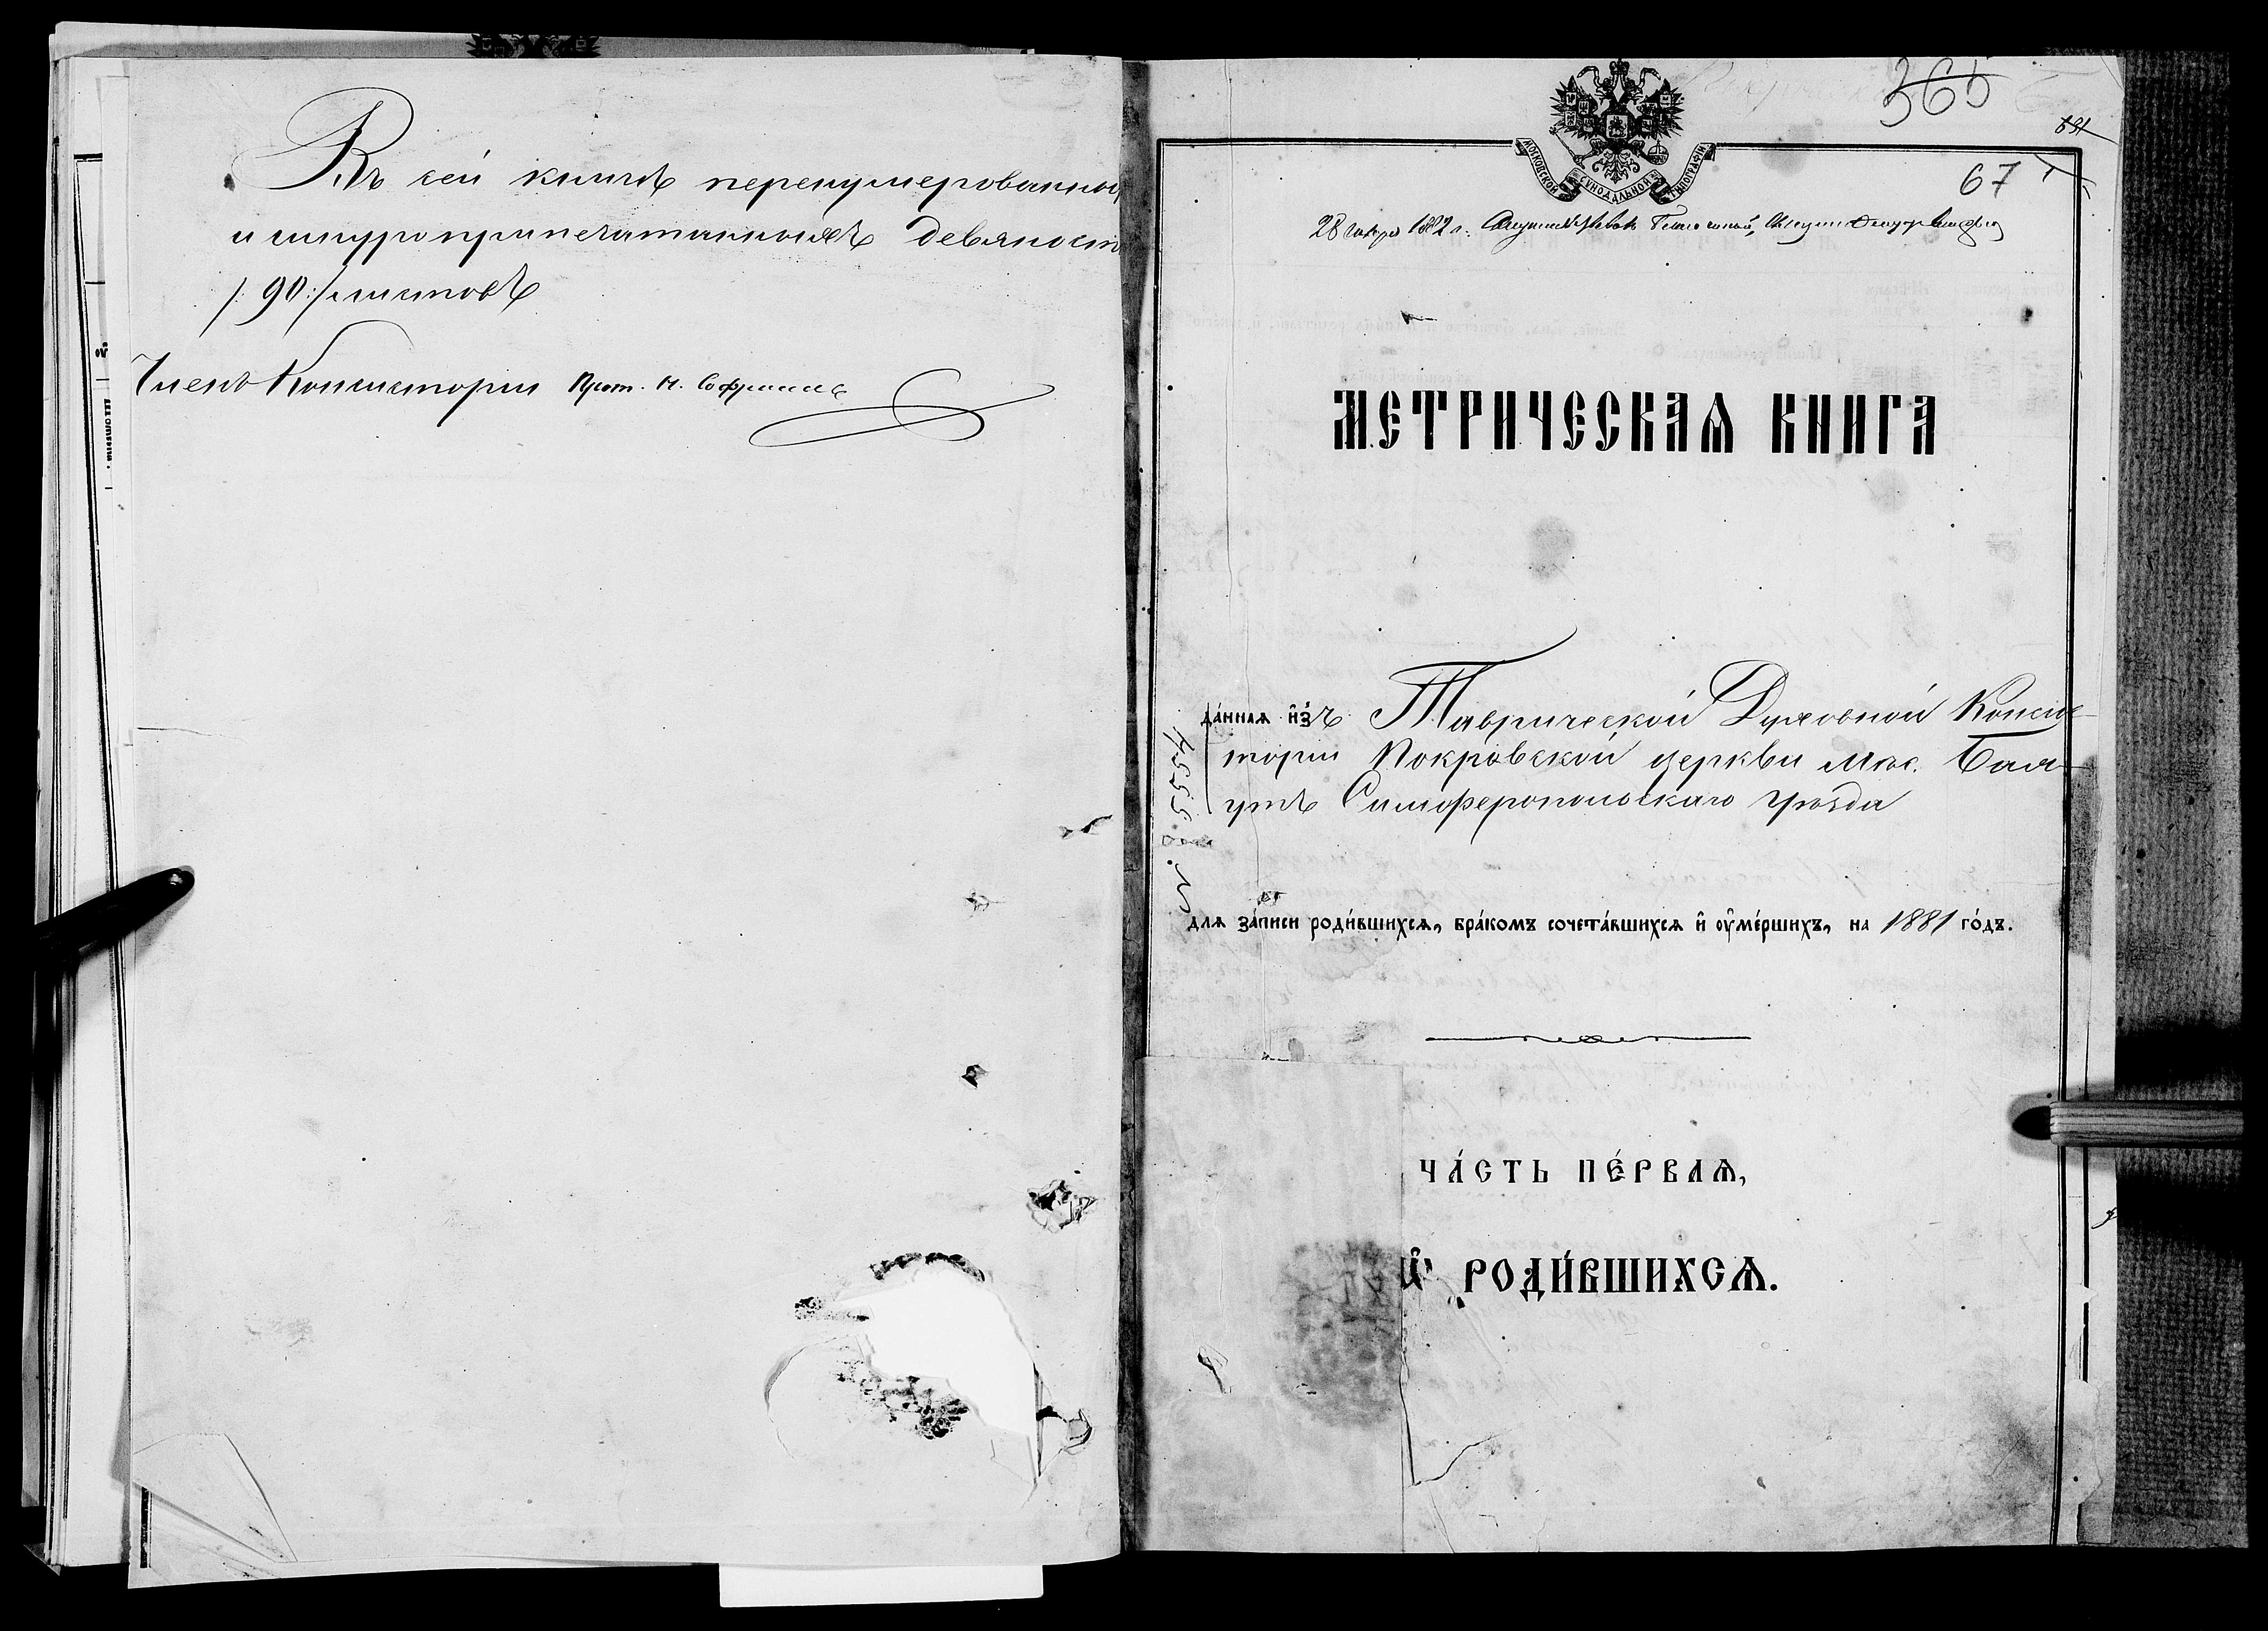 Въ сей книгѣ перенумерованно
и шнуроприпечатанныхъ девяносто
/: 90 :/ листовъ
Членъ Консисторіи Прот.
365
891
67
МОСКОВСКОЙ СѴНОДАЛЬНОЙ ТИПОГРАФІИ
28 1882 г.
МЕТРИЧЕСКАѦ КНИГА
да́ннаѧ и҆́зъ Таврической Духовной Конси-
сторіи Покровской церкви мѣс. Бая-
утъ Симферопольскаго уѣзда
№ 4555
длѧ за́писи роди́вшихсѧ, бра́комъ сочета́вшихсѧ и҆ ᲂу҆ме́ршихъ, на 1881 го́дъ.
ЧА́СТЬ ПЕ́РВАѦ,
Ѡ҆ РОДИ́ВШИХСѦ.